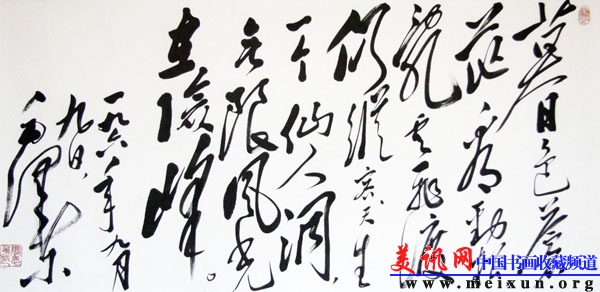 暮色蒼
茫看勁松
亂云飛渡
仍從容天生
一个仙人洞，
无限風光
在險峰。
一九六一年九月
九日。
毛澤东
美讯网 中国书画收藏频道
www.meixun.org